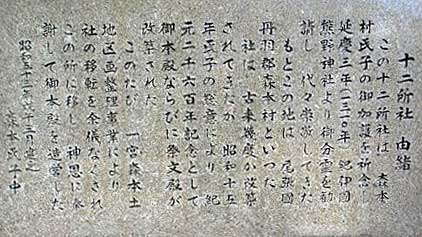 十二所社 由緒
この十二所社は 森本
村氏子の御加護を祈念し
延慶三年(一三一〇年) 紀伊国
熊野神社より御分霊を勧
請し 代々崇敬してきた
もとこの地は 尾張國
丹羽郡森本村といった
社は 古来幾度か改築
されてきたが 昭和十五
年氏子の総意により 紀
元二千六百年記念として
御本殿ならびに祭文殿が
改築された
このたび 一宮森本土
地区画整理事業により
社の移転を余儀なくされ
この所に移し 神恩に奉
謝して御本殿を造営した
昭和五十三年十二月
森本氏子中